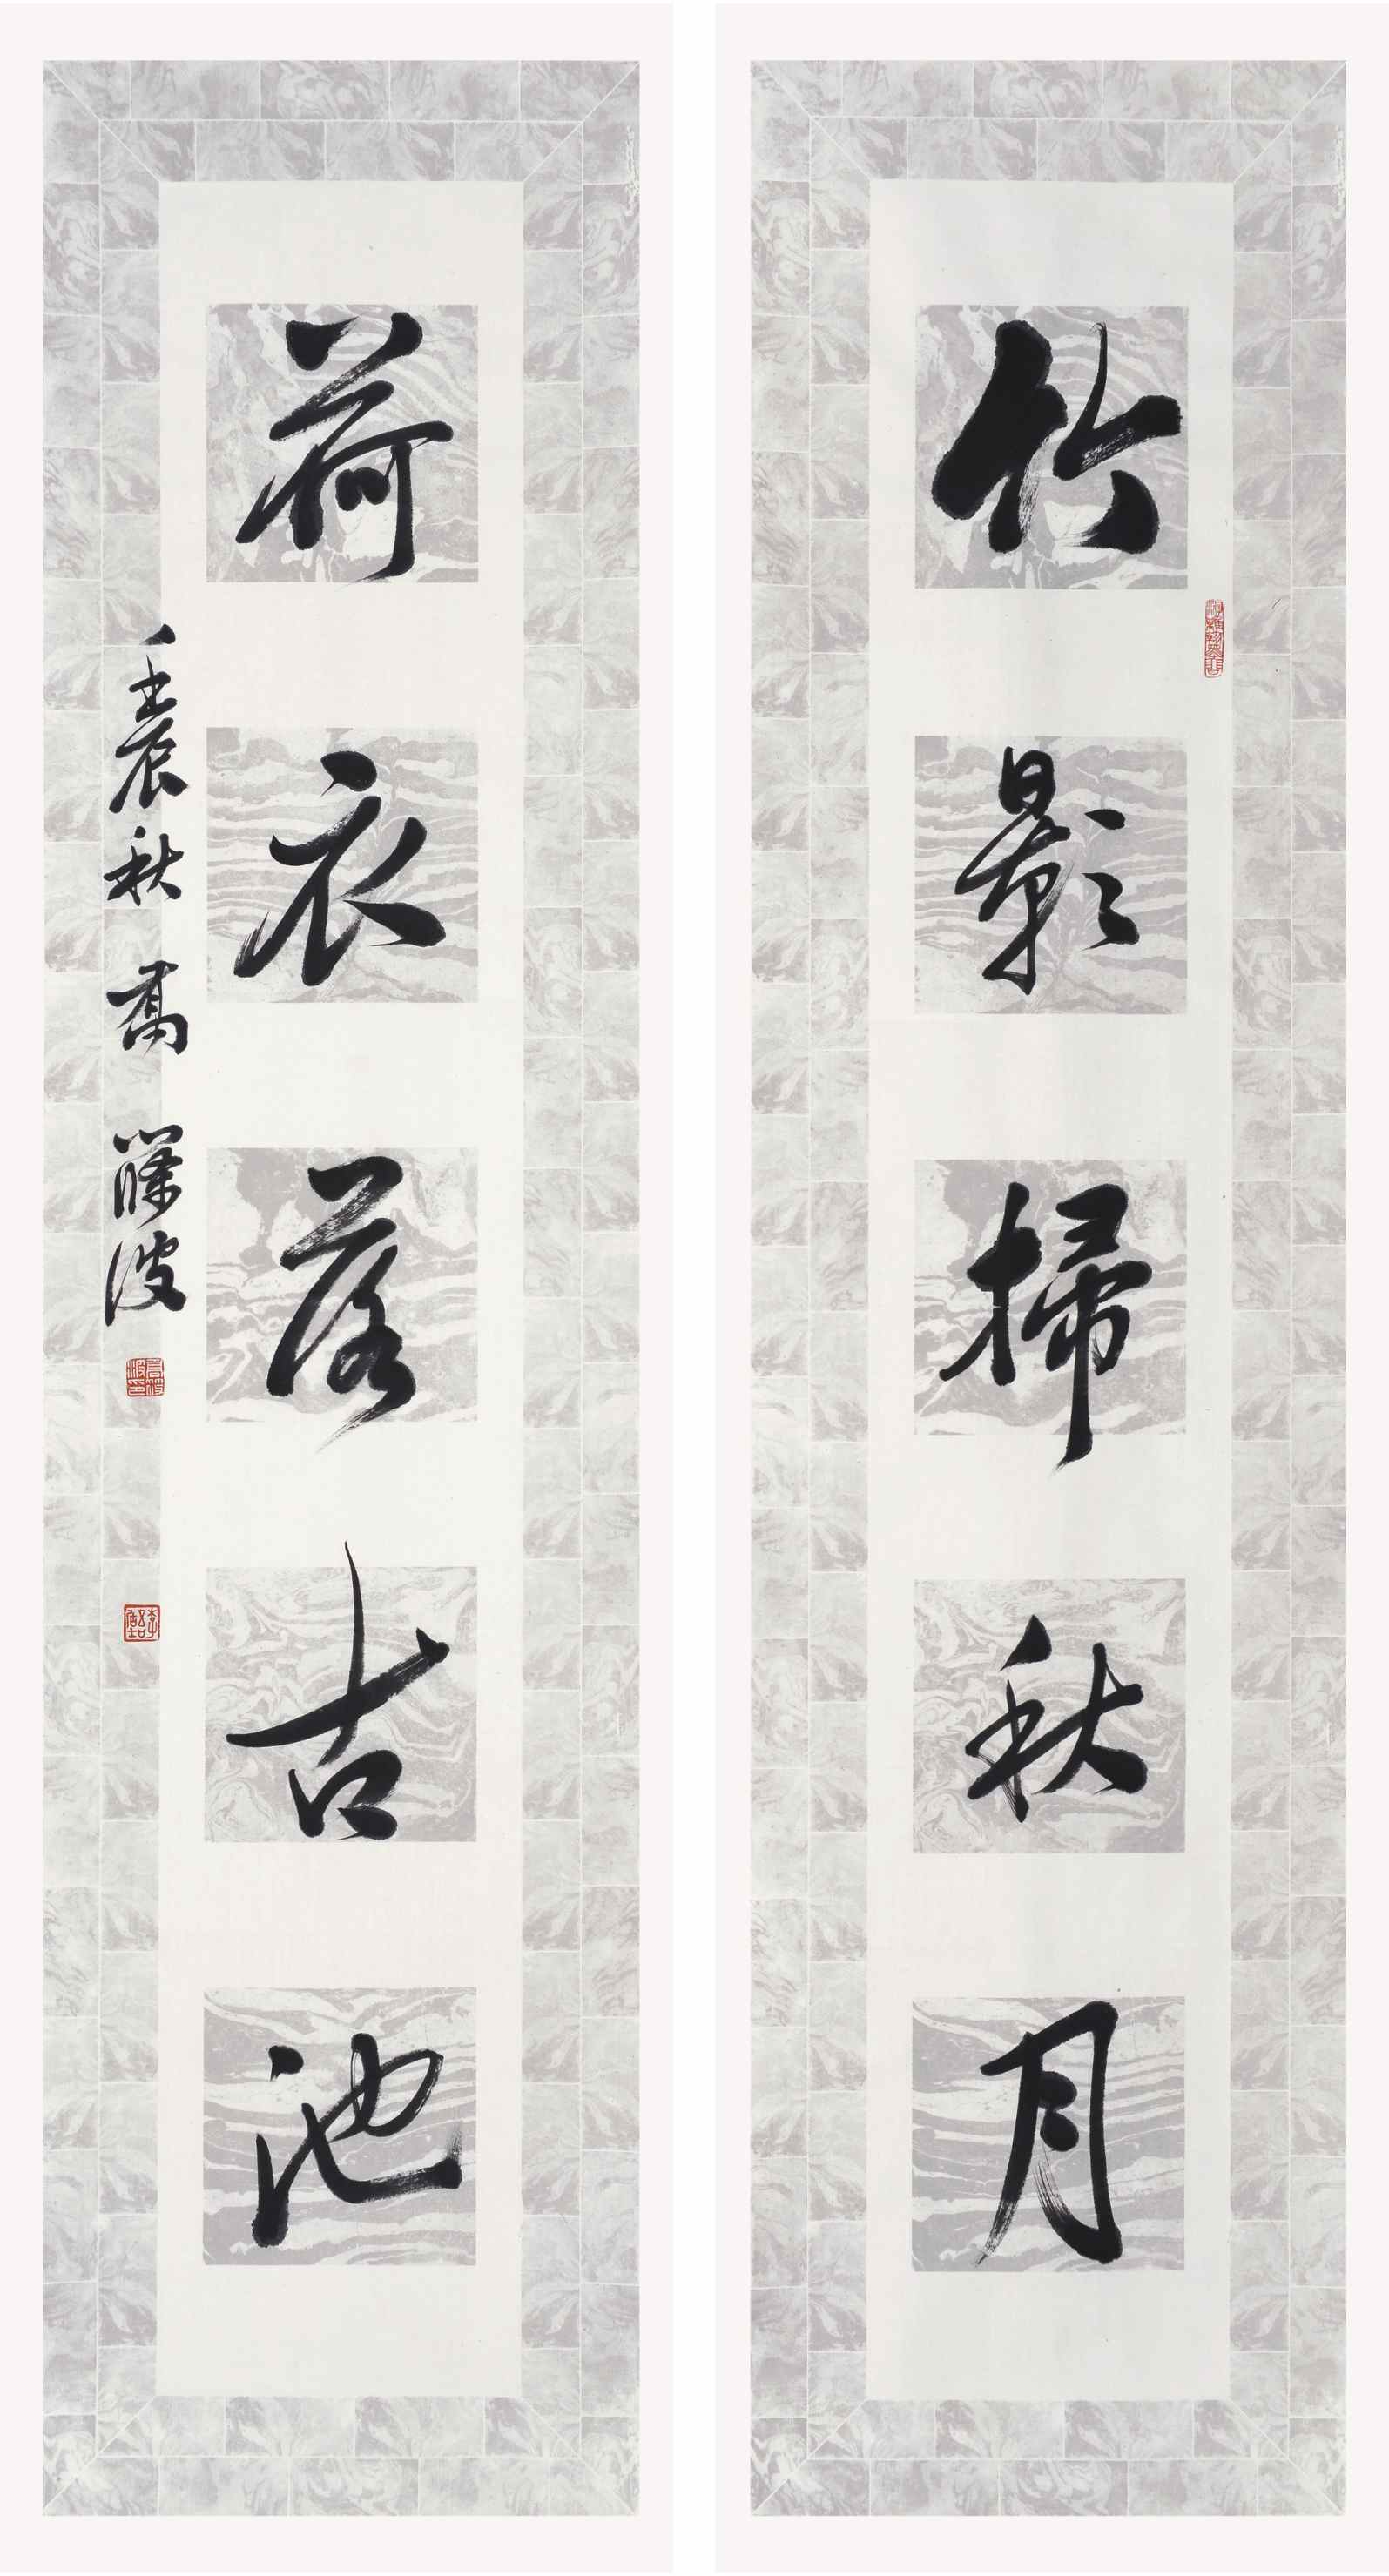 竹影掃秋月
荷衣落古池
壬辰秋 喬 波